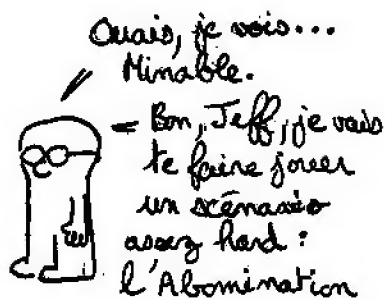 Ouais, je vois...
Minable.
Bon, Jeff, je vais
te faire jouer
un scénario
assez hard :
l'Abomination